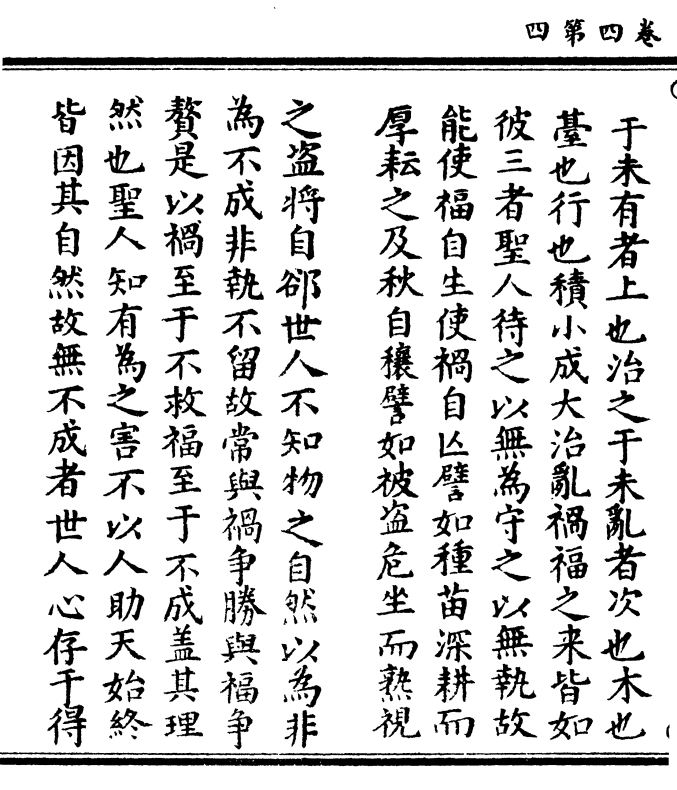 卷四第四
于未有者上也治之于未亂者次也木也
臺也行也積小成大治亂禍福之来皆如
彼三者聖人待之以無為守之以無執故
能使福自生使禍自亾譬如種苗深耕而
厚耘之及秋自穰譬如被盗危坐而熟視
之盗将自郤世人不知物之自然以為非
為不成非執不留故常與禍争勝與福争
贅是以禍至于不救福至于不成盖其理
然也聖人知有為之害不以人助天始終
皆因其自然故無不成者世人心存于得